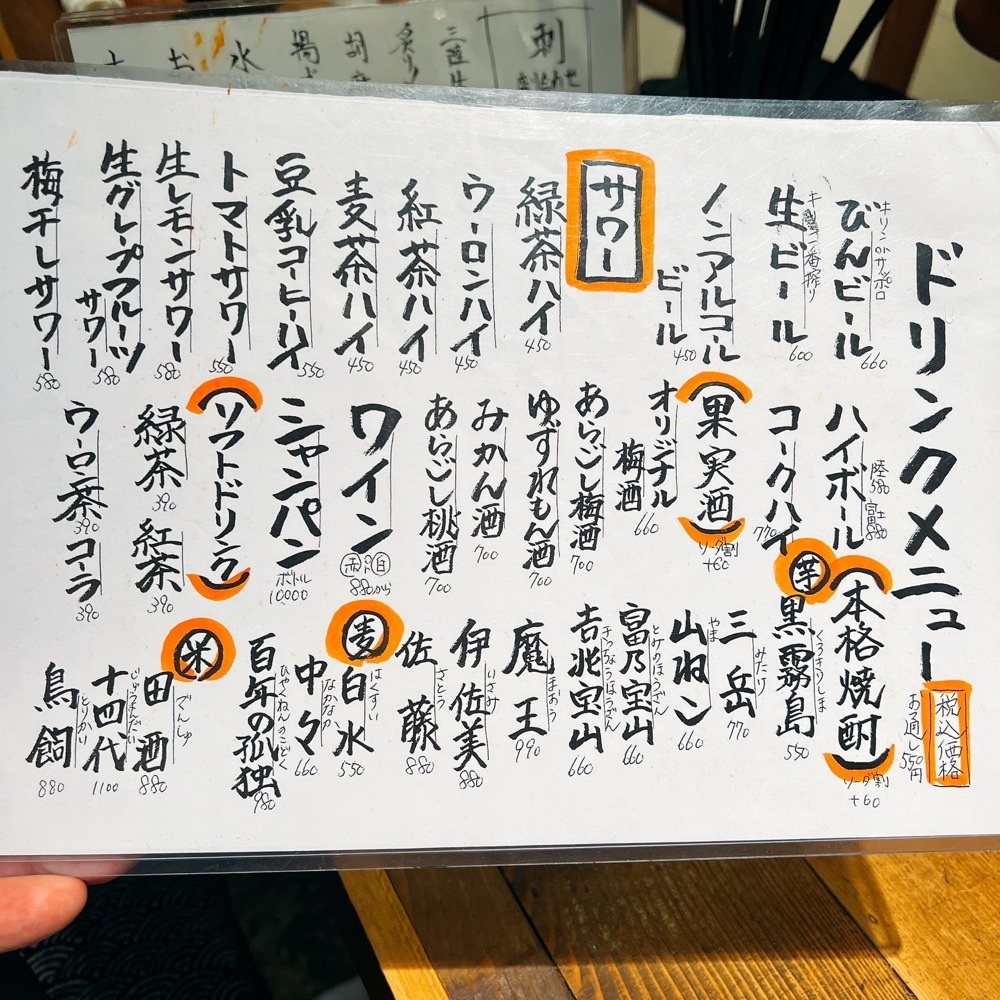 ドリンクメニュー
税込価格
お通し550円
キリンorサッポロ
びんビール
660
キリン一番搾り
生ビール
600
ノンアルコール
ビール
450
サワー
緑茶ハイ
450
ウーロンハイ
450
紅茶ハイ
450
麦茶ハイ
450
豆乳コーヒーハイ
550
トマトサワー
550
生レモンサワー
580
生グレープフルーツ
サワー
580
梅干しサワー
580
ハイボール
陸580
富士880
コークハイ
770
果実酒
ソーダ割
+60
オリジナル
梅酒
660
あらごし梅酒
700
ゆずれもん酒
700
みかん酒
700
あらごし桃酒
700
ワイン
赤 白
880から
シャンパン
ボトル
10000
ソフトドリンク
緑茶
390
紅茶
390
ウーロン茶
390
コーラ
390
本格焼酎
ソーダ割
+60
芋
黒霧島
くろきりしま
550
三岳
みたけ
770
山ねこ
やま
660
富乃宝山
とみのほうざん
660
吉兆宝山
きっちょうほうざん
660
魔王
まおう
990
伊佐美
いさみ
880
佐藤
さとう
880
麦
白水
はくすい
550
中々
なかなか
660
百年の孤独
ひゃくねんのこどく
980
米
田酒
でんしゅ
880
十四代
じゅうよんだい
1100
鳥飼
とりかい
880
刺
水